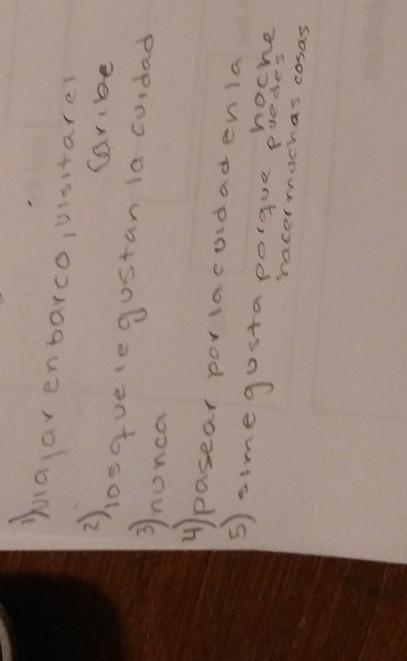 1) viajar en barco, visitar el
Caribe
2) los que le gustan la cuidad
3) nunca
4) pasear por la cuidad en la
noche
5) si me gusta porque puedes
hacer muchas cosas